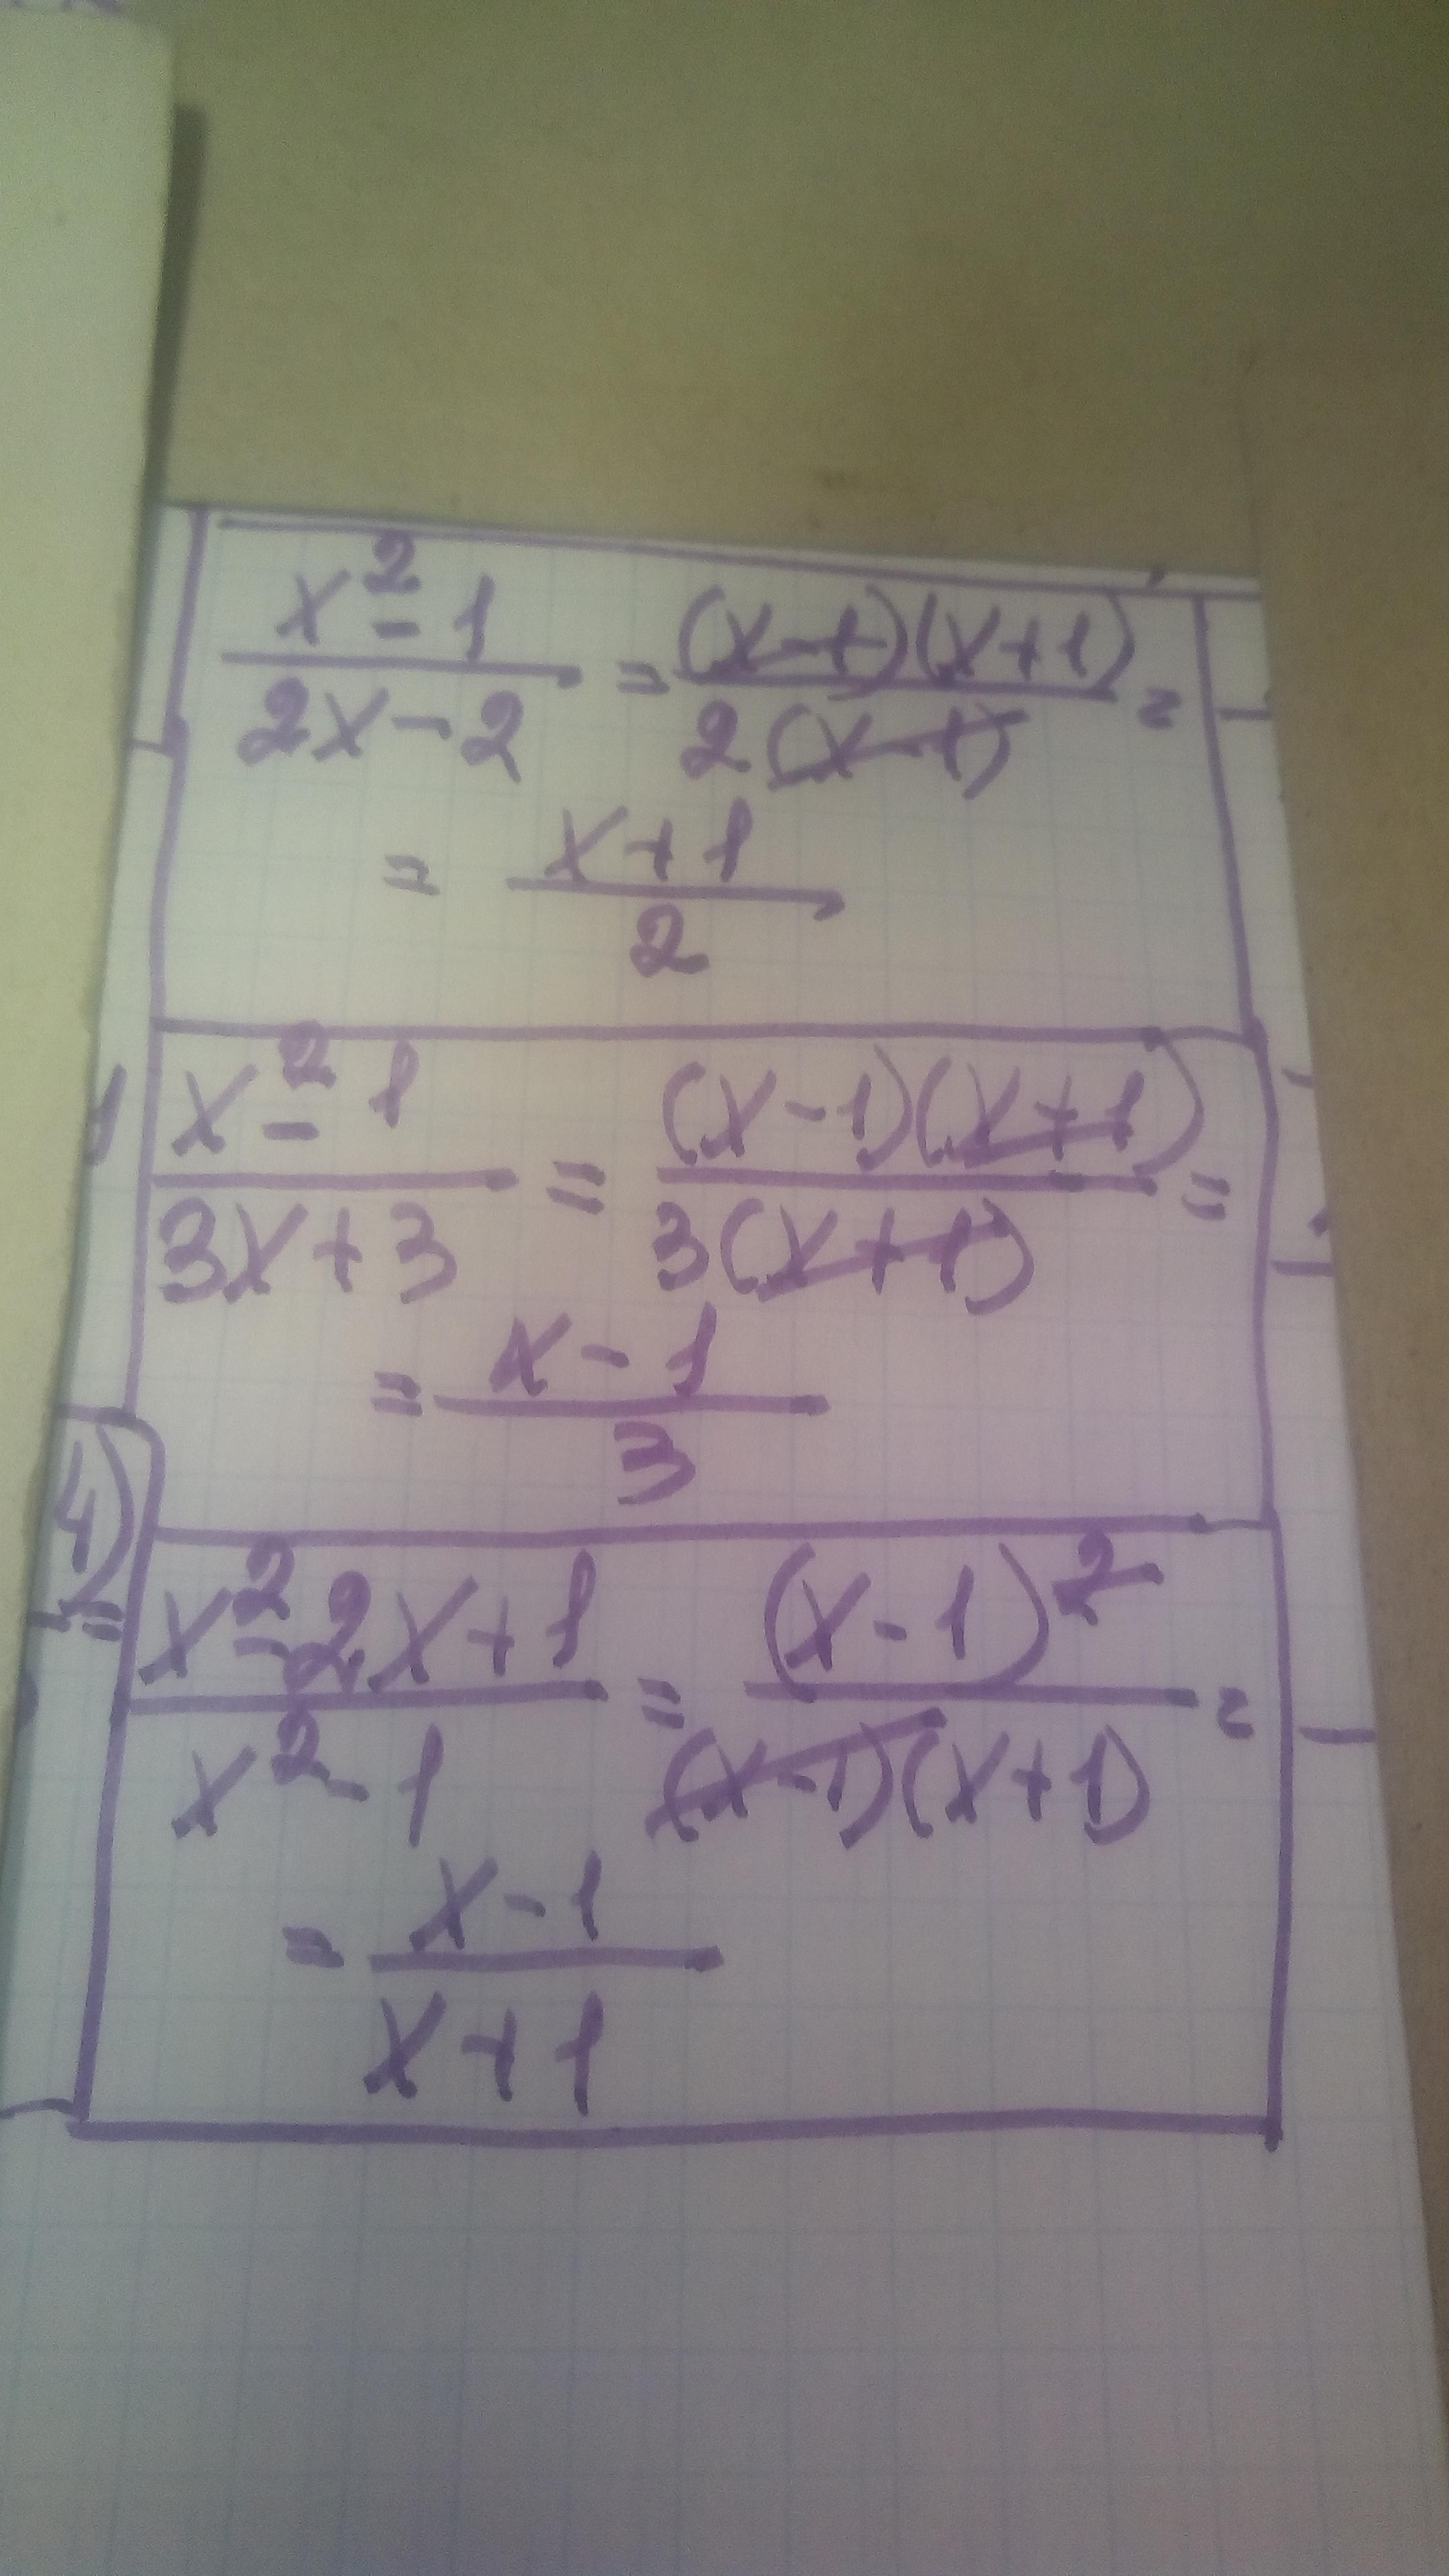 x² - 1 / 2x - 2 = (x - 1)(x + 1) / 2(x - 1) =
= x + 1 / 2
x² - 1 / 3x + 3 = (x - 1)(x + 1) / 3(x + 1) =
= x - 1 / 3
4)
x² - 2x + 1 / x² - 1 = (x - 1)² / (x - 1)(x + 1) =
= x - 1 / x + 1